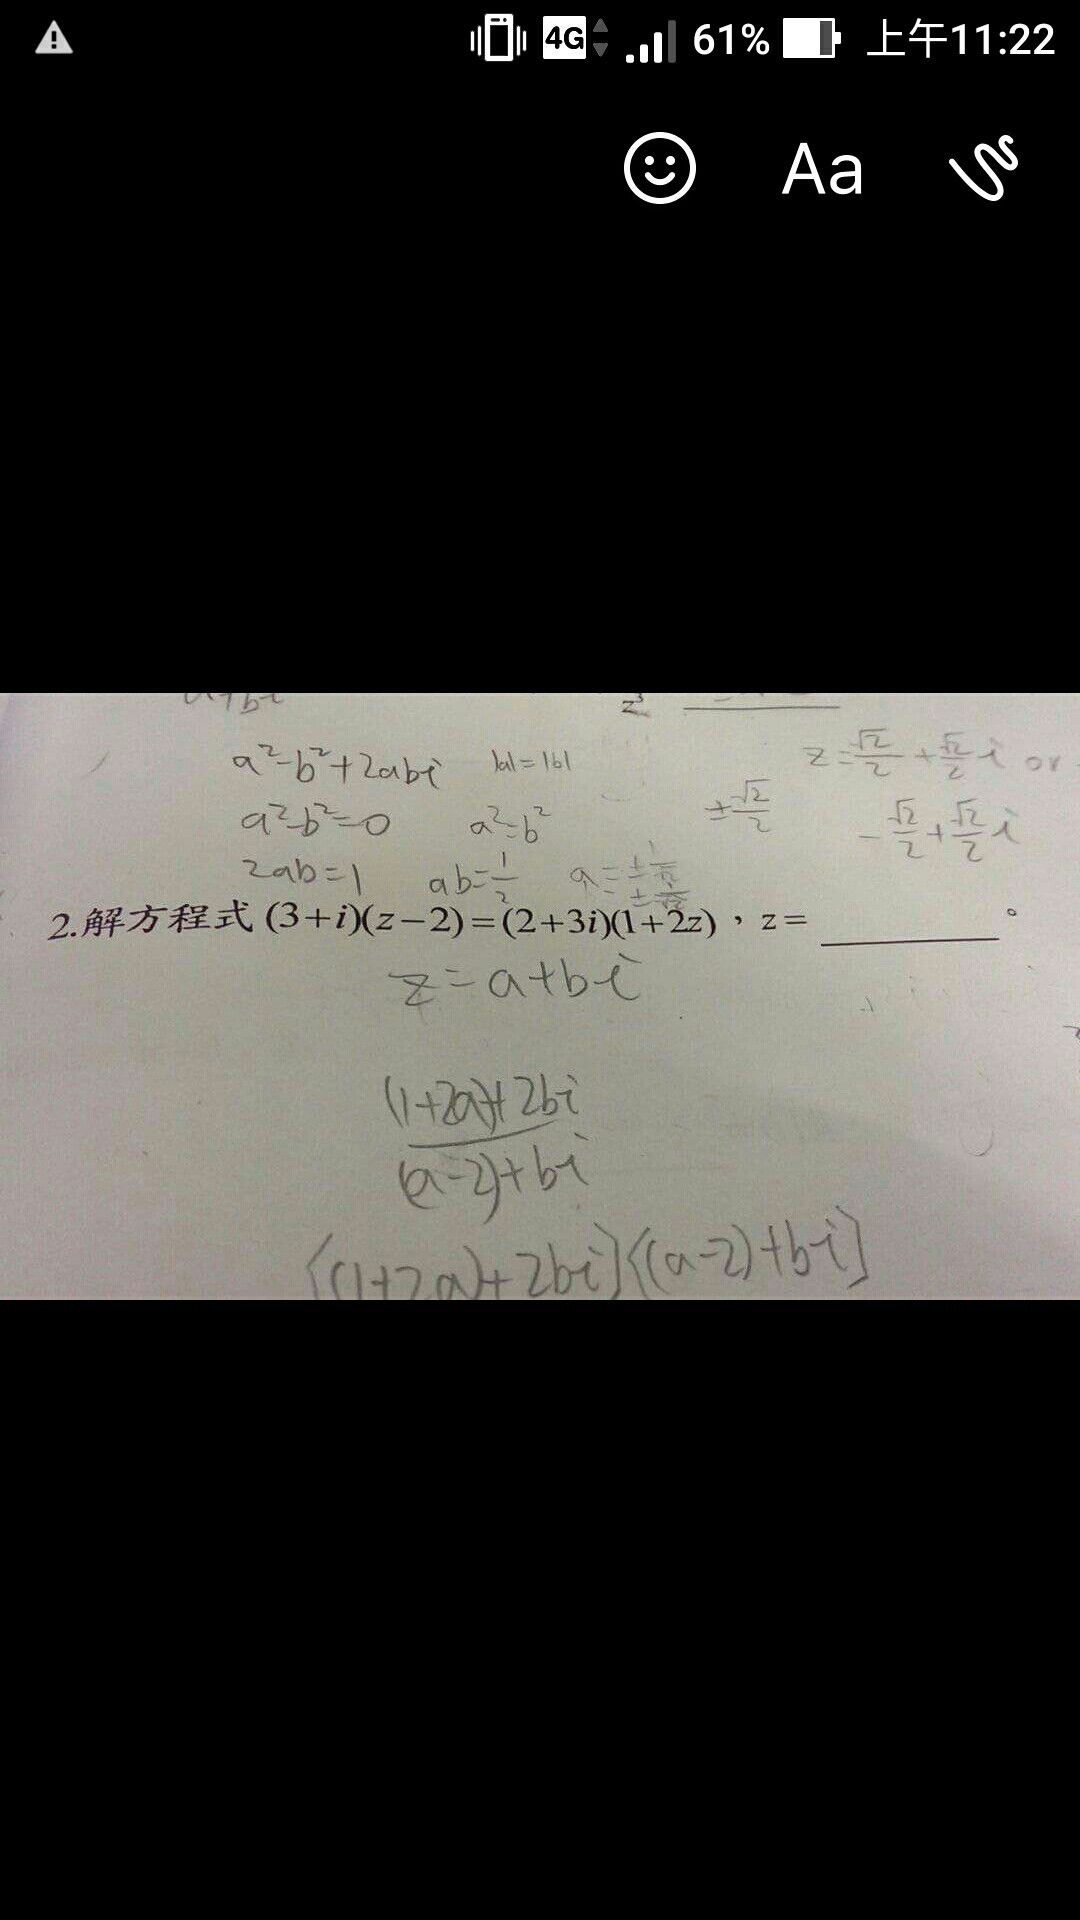 4G 61% 上午11:22
Aa
a+bi
z³
a²-b²+2abi |a|=|b|
z=√2/2+√2/2 i or
a²-b²=0 a²=b² ±√2/2
-√2/2+√2/2 i
2ab=1 ab=1/2 a=±1/√2
2.解方程式 (3+i)(z−2)=(2+3i)(1+2z),z=______。
z=a+bi
(1+2a)+2bi
(a-2)+bi
[(1+2a)+2bi][(a-2)+bi]